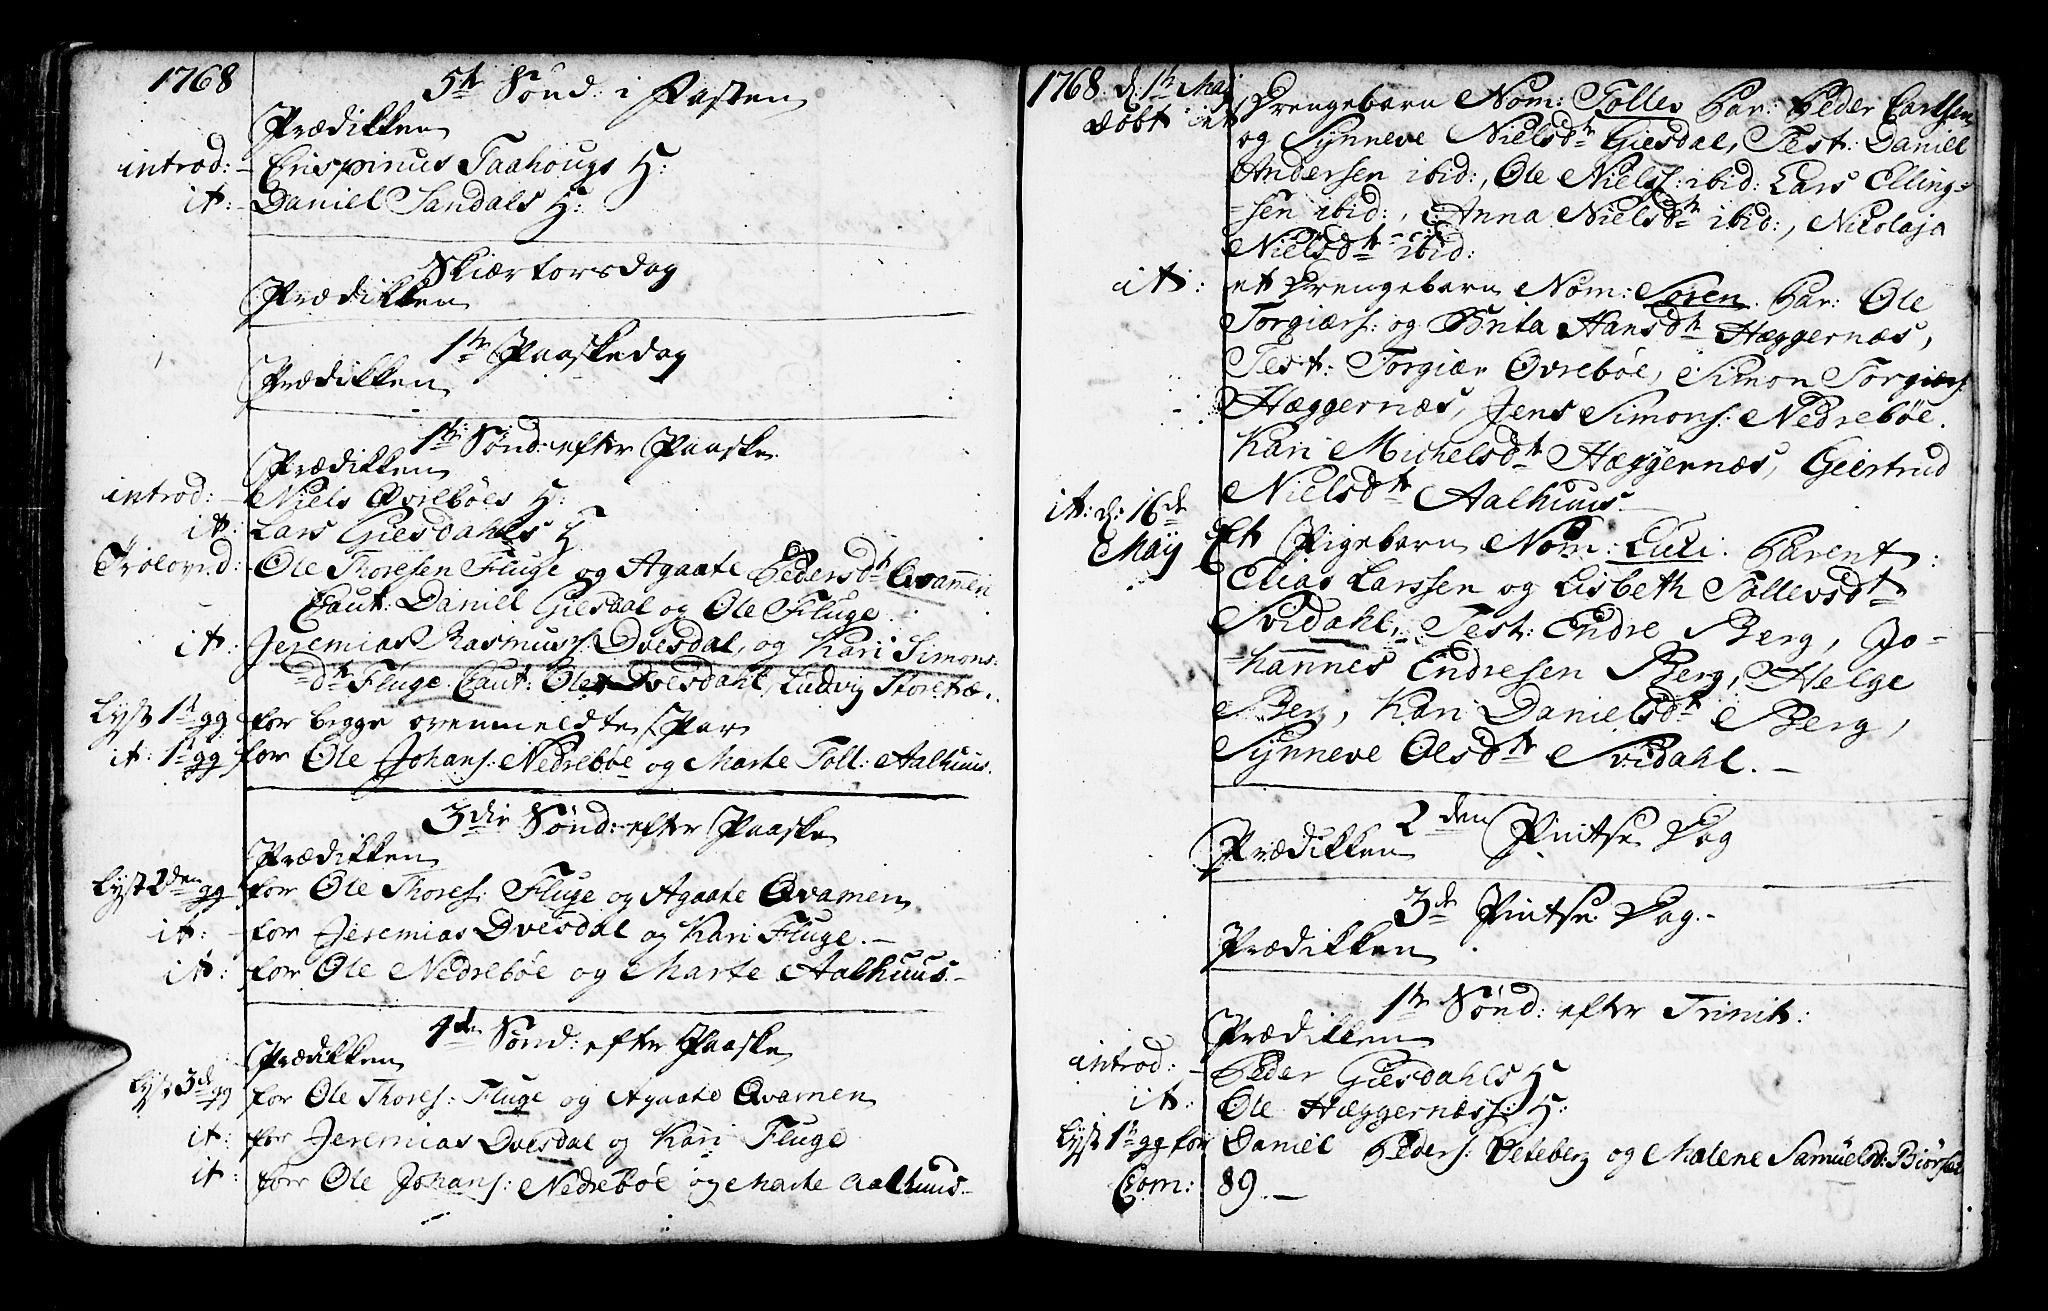 1768
5te Sønd: i Fasten
Prædikken
introd: - Crispinus Taahougs H:
it: - Daniel Sandals H:
Skiærtorsdag
Prædikken
1te Paaskedag
Prædikken
1te Sønd: efter Paaske
Prædikken
introd: - Niels Øvrebøes H:
it: Lars Giesdahls H
Trolov.d: Ole Thoresen Fluge og Agaate Pedersdtr Qvammen
Caut: Daniel Giesdal og Ole Fluge
it: Jeremias Rasmuss: Dvesdal, og Kari Simons:
dtr Fluge. Caut: Ole Dvesdahl, Ludvig Storetræ.
Lyst 1st gg for begge ovenmeldte Par
it: 1st gg for Ole Johans: Nedrebøe og Marte Toll: Aalhuus.
3die Sønd: efter Paaske
Prædikken
Lyst 2den gg for Ole Thores: Fluge og Agaate Qvamen
it: - for Jeremias Dvesdal og Kari Fluge. -
it: for Ole Nedrebøe og Marte Aalhuus -
4de Sønd: efter Paaske
Prædikken
Lyst 3de gg for Ole Thores: Fluge og Agaate Qvamen
it: for Jeremias Dvesdal og Kari Fluge
it: for Ole Johans: Nedrebøe og Marte Aalhuus -
1768 d: 1te Maj
Døbt et Drengebarn Nom: Tolles Par: Peder Carlsen
og Synneve Nielsdtr Giesdal, Test: Daniel
Andersen ibid:, Ole Niels: ibid: Lars Elling=
=sen ibid:, Anna Nielsdtr ibid:, Nikolaja
Nielsdtr ibid:
it: et Drengebarn Nom: Søren. Par: Ole
Torgiers: og Brita Hansdtr Hæggernæs,
Test: Torgier Øvrebøe, Simon Torgiers:
Hæggernæs, Jens Simons: Nedrebøe.
Kari Michelsdtr Hæggernæs, Geertrud
Nielsdtr Aalhuus.
it: d: 16de
Maÿ Et Pigebarn Nom: Luci. Parent:
Elias Larssen og Lisbeth Tollevsdtr
Svidahl, Test: Endre Berg, Jo-
=hannes Endresen Berg, Helge
Berg, Kari Danielsdtr Berg,
Synneve Olsdtr Svidahl. -
2den Pintse Dag
Prædikken
3de Pintse Dag.-
Prædikken
1te Sønd: efter Trinit:
Prædikken
introd: - Peder Giesdahls H
it: Ole Hæggernæss: H:
Lyst 1st gg for Daniel Peders: Veteberg og Malene Samuelsd: Biørset
Com: 89. -